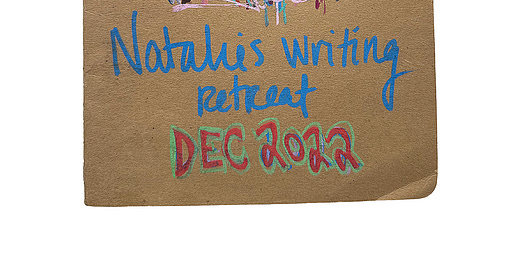 Natalies writing
retreat
DEC 2022